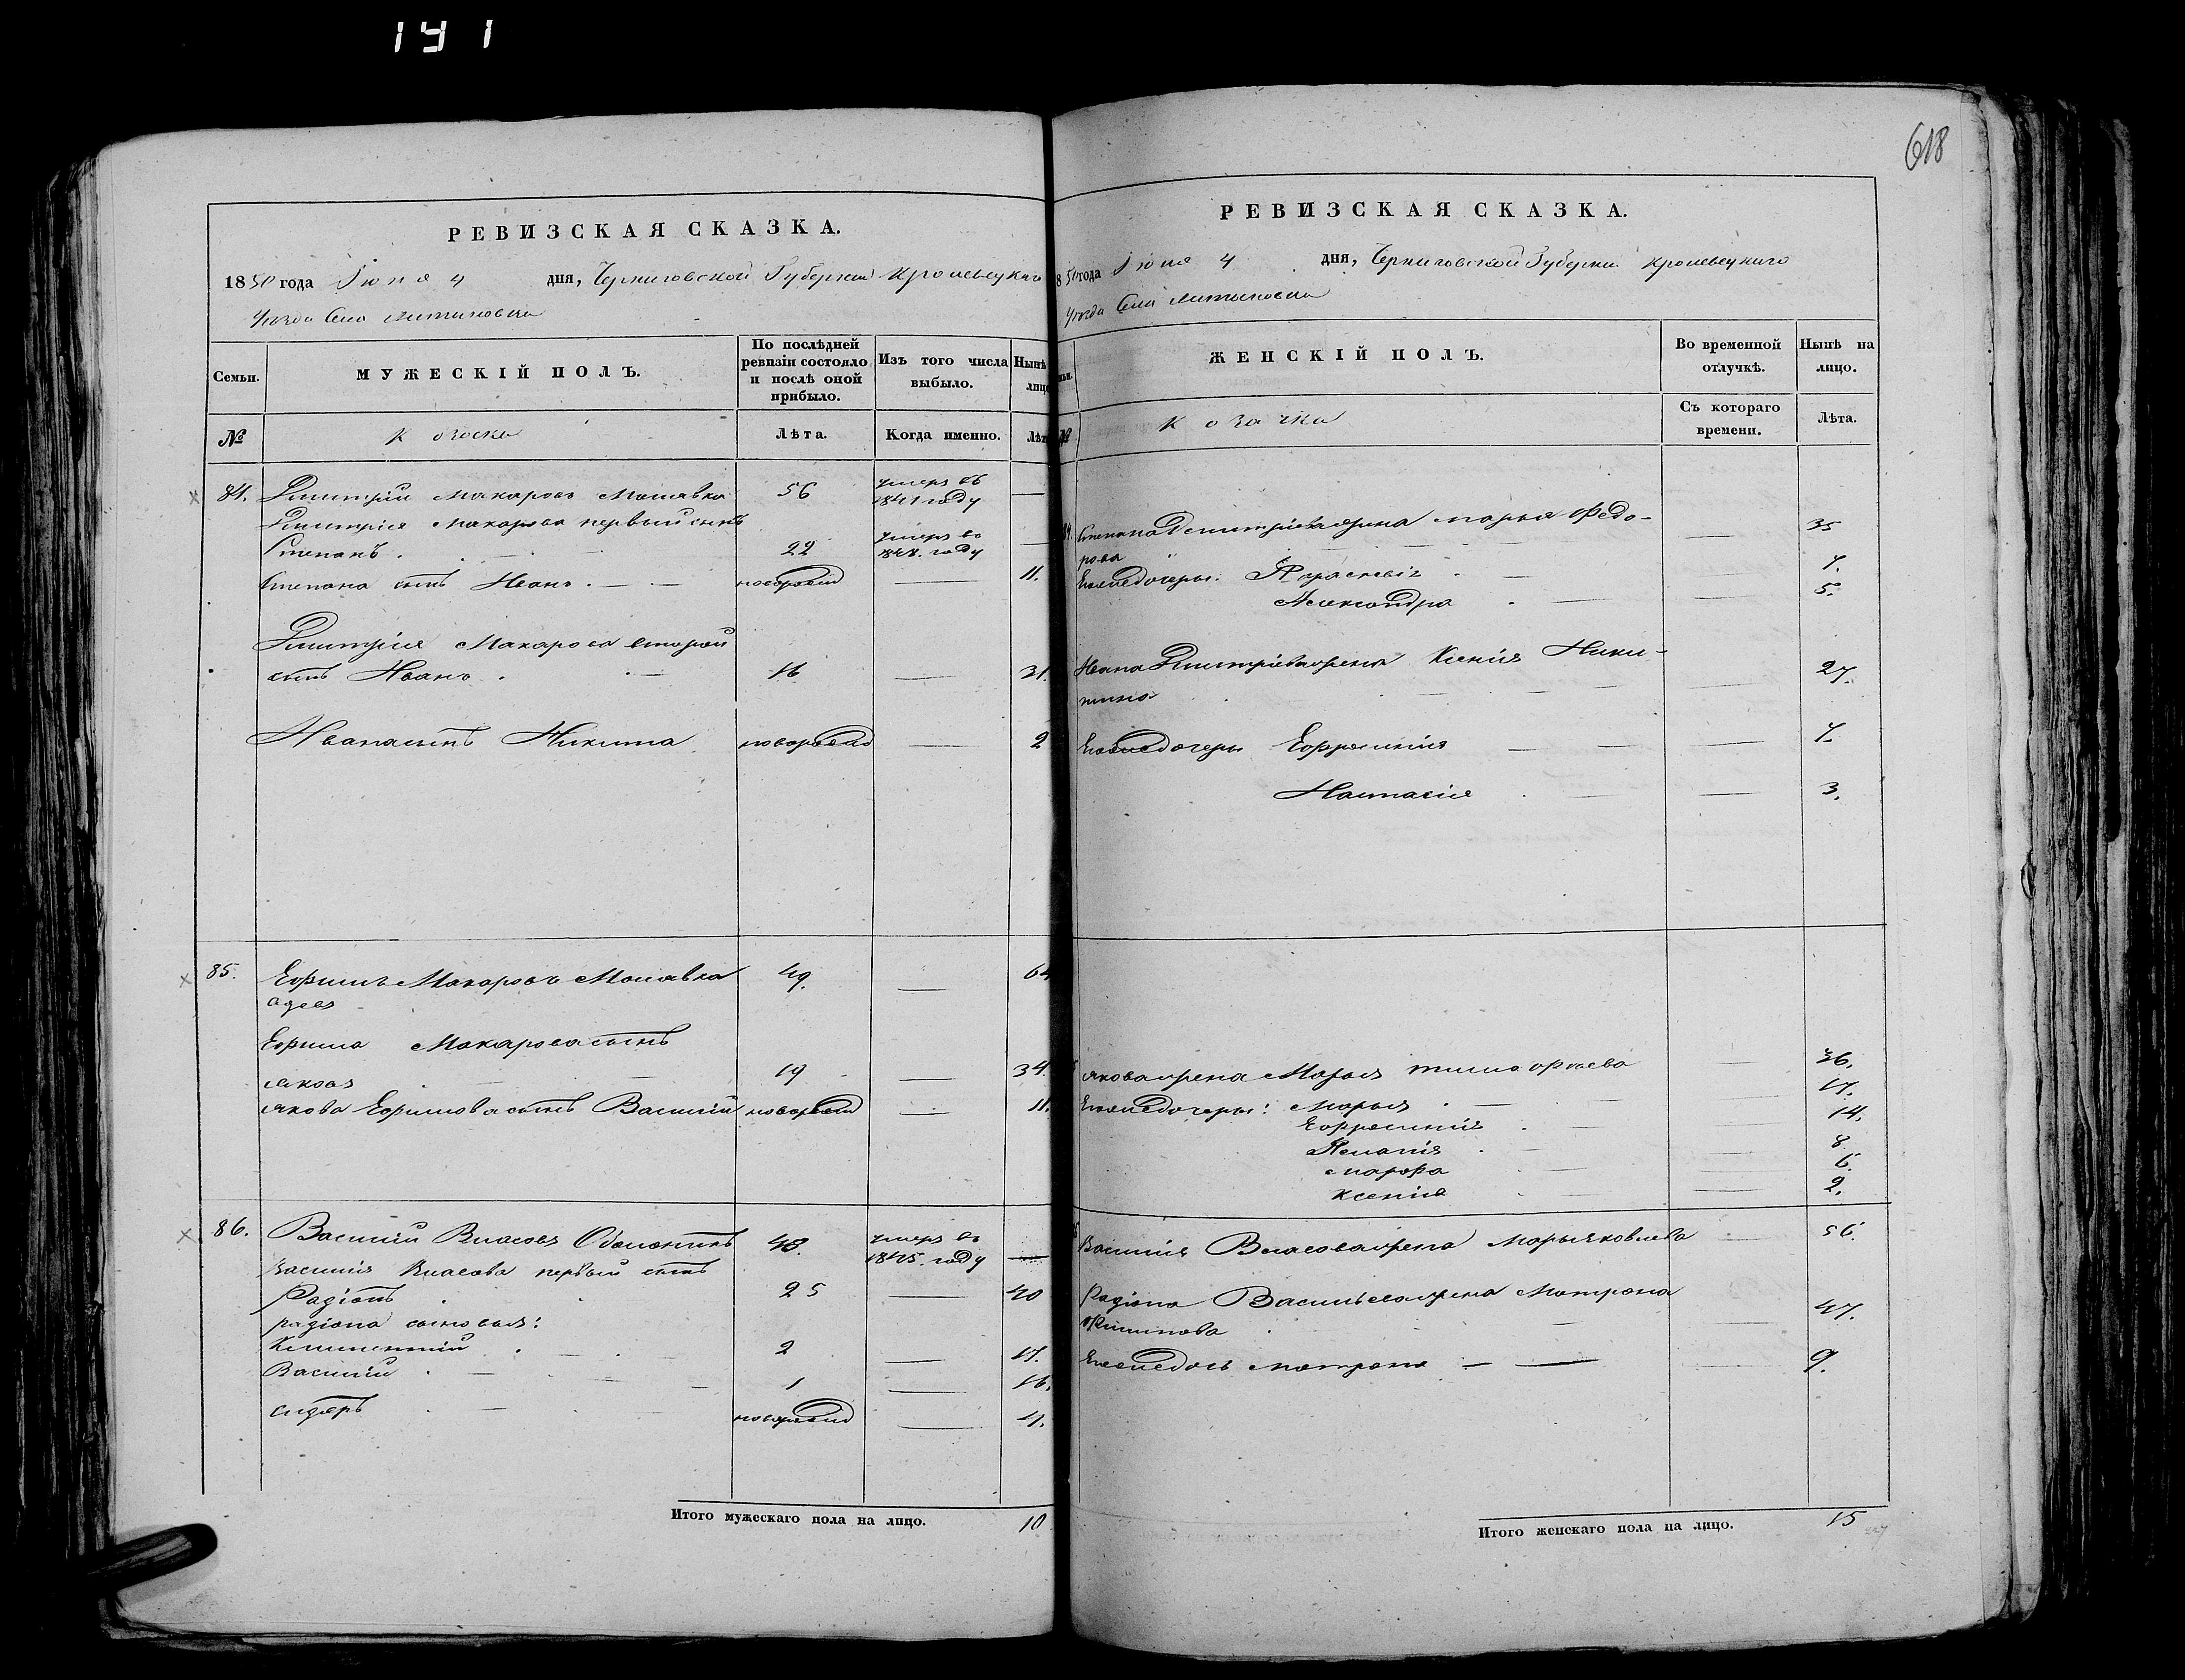 141
618
РЕВИЗСКАЯ СКАЗКА.
1850 года Іюня 4 дня, Черниговской Губерніи Кролевецкаго
Уѣзда Села Литвиновка
Семьи.
МУЖЕСКІЙ ПОЛЪ.
По послѣдней ревизіи состояло и послѣ оной прибыло.
Изъ того числа выбыло.
Нынѣ лицо
№
Козаки
Лѣта.
Когда именно.
Лѣт
84. Дмитрій Макаровъ 56 умеръ въ 1841 году —
Дмитрія Макарова первый сынъ
Степанъ 22 умеръ въ году —
Степана сынъ Иванъ новорожд — 11.
Дмитрія Макарова второй
сынъ Иванъ 16 — 31.
Ивана сынъ Никита новорожд — 2
85. Ефимъ Макаровъ 49. — 64
Ефима Макарова сынъ
Яковъ 19 — 34.
Якова Ефимова сынъ Василій новорожд — 11.
86. Василій Власовъ 43. умеръ въ 1845 году —
Василія Власова первый сынъ
Радіонъ 25 — 40
Радіона сыновья:
Климентій 2 — 17.
Василій 1 — 16.
Сидоръ новорожд — 4.
Итого мужескаго пола на лицо. 10
РЕВИЗСКАЯ СКАЗКА.
850 года Іюня 4 дня, Черниговской Губерніи Кролевецкаго
Уѣзда Села Литвиновка
ЖЕНСКІЙ ПОЛЪ.
Во временной отлучкѣ.
Нынѣ на лицо.
№
Козачки
Съ котораго времени.
Лѣта.
84. Степана Дмитріева жена Марья Федо-
рова — 35
Его же дочеры: Параскевія — 7.
Александра — 5.
Ивана Дмитріева жена Ксенія Ники-
тина — 27.
Его же дочеры Ефросинія — 7.
Настасія — 3.
Якова жена Марья Тимофѣева — 36.
Его же дочеры: Марья — 17.
Ефросинія — 14.
— 8
Марфа — 6.
Ксенія — 2.
Василія Власова жена Марья Яковлева — 56.
Радіона Васильева жена Матрона
Филипова — 47.
Его же дочь Матрона — 9.
Итого женскаго пола на лицо. 15